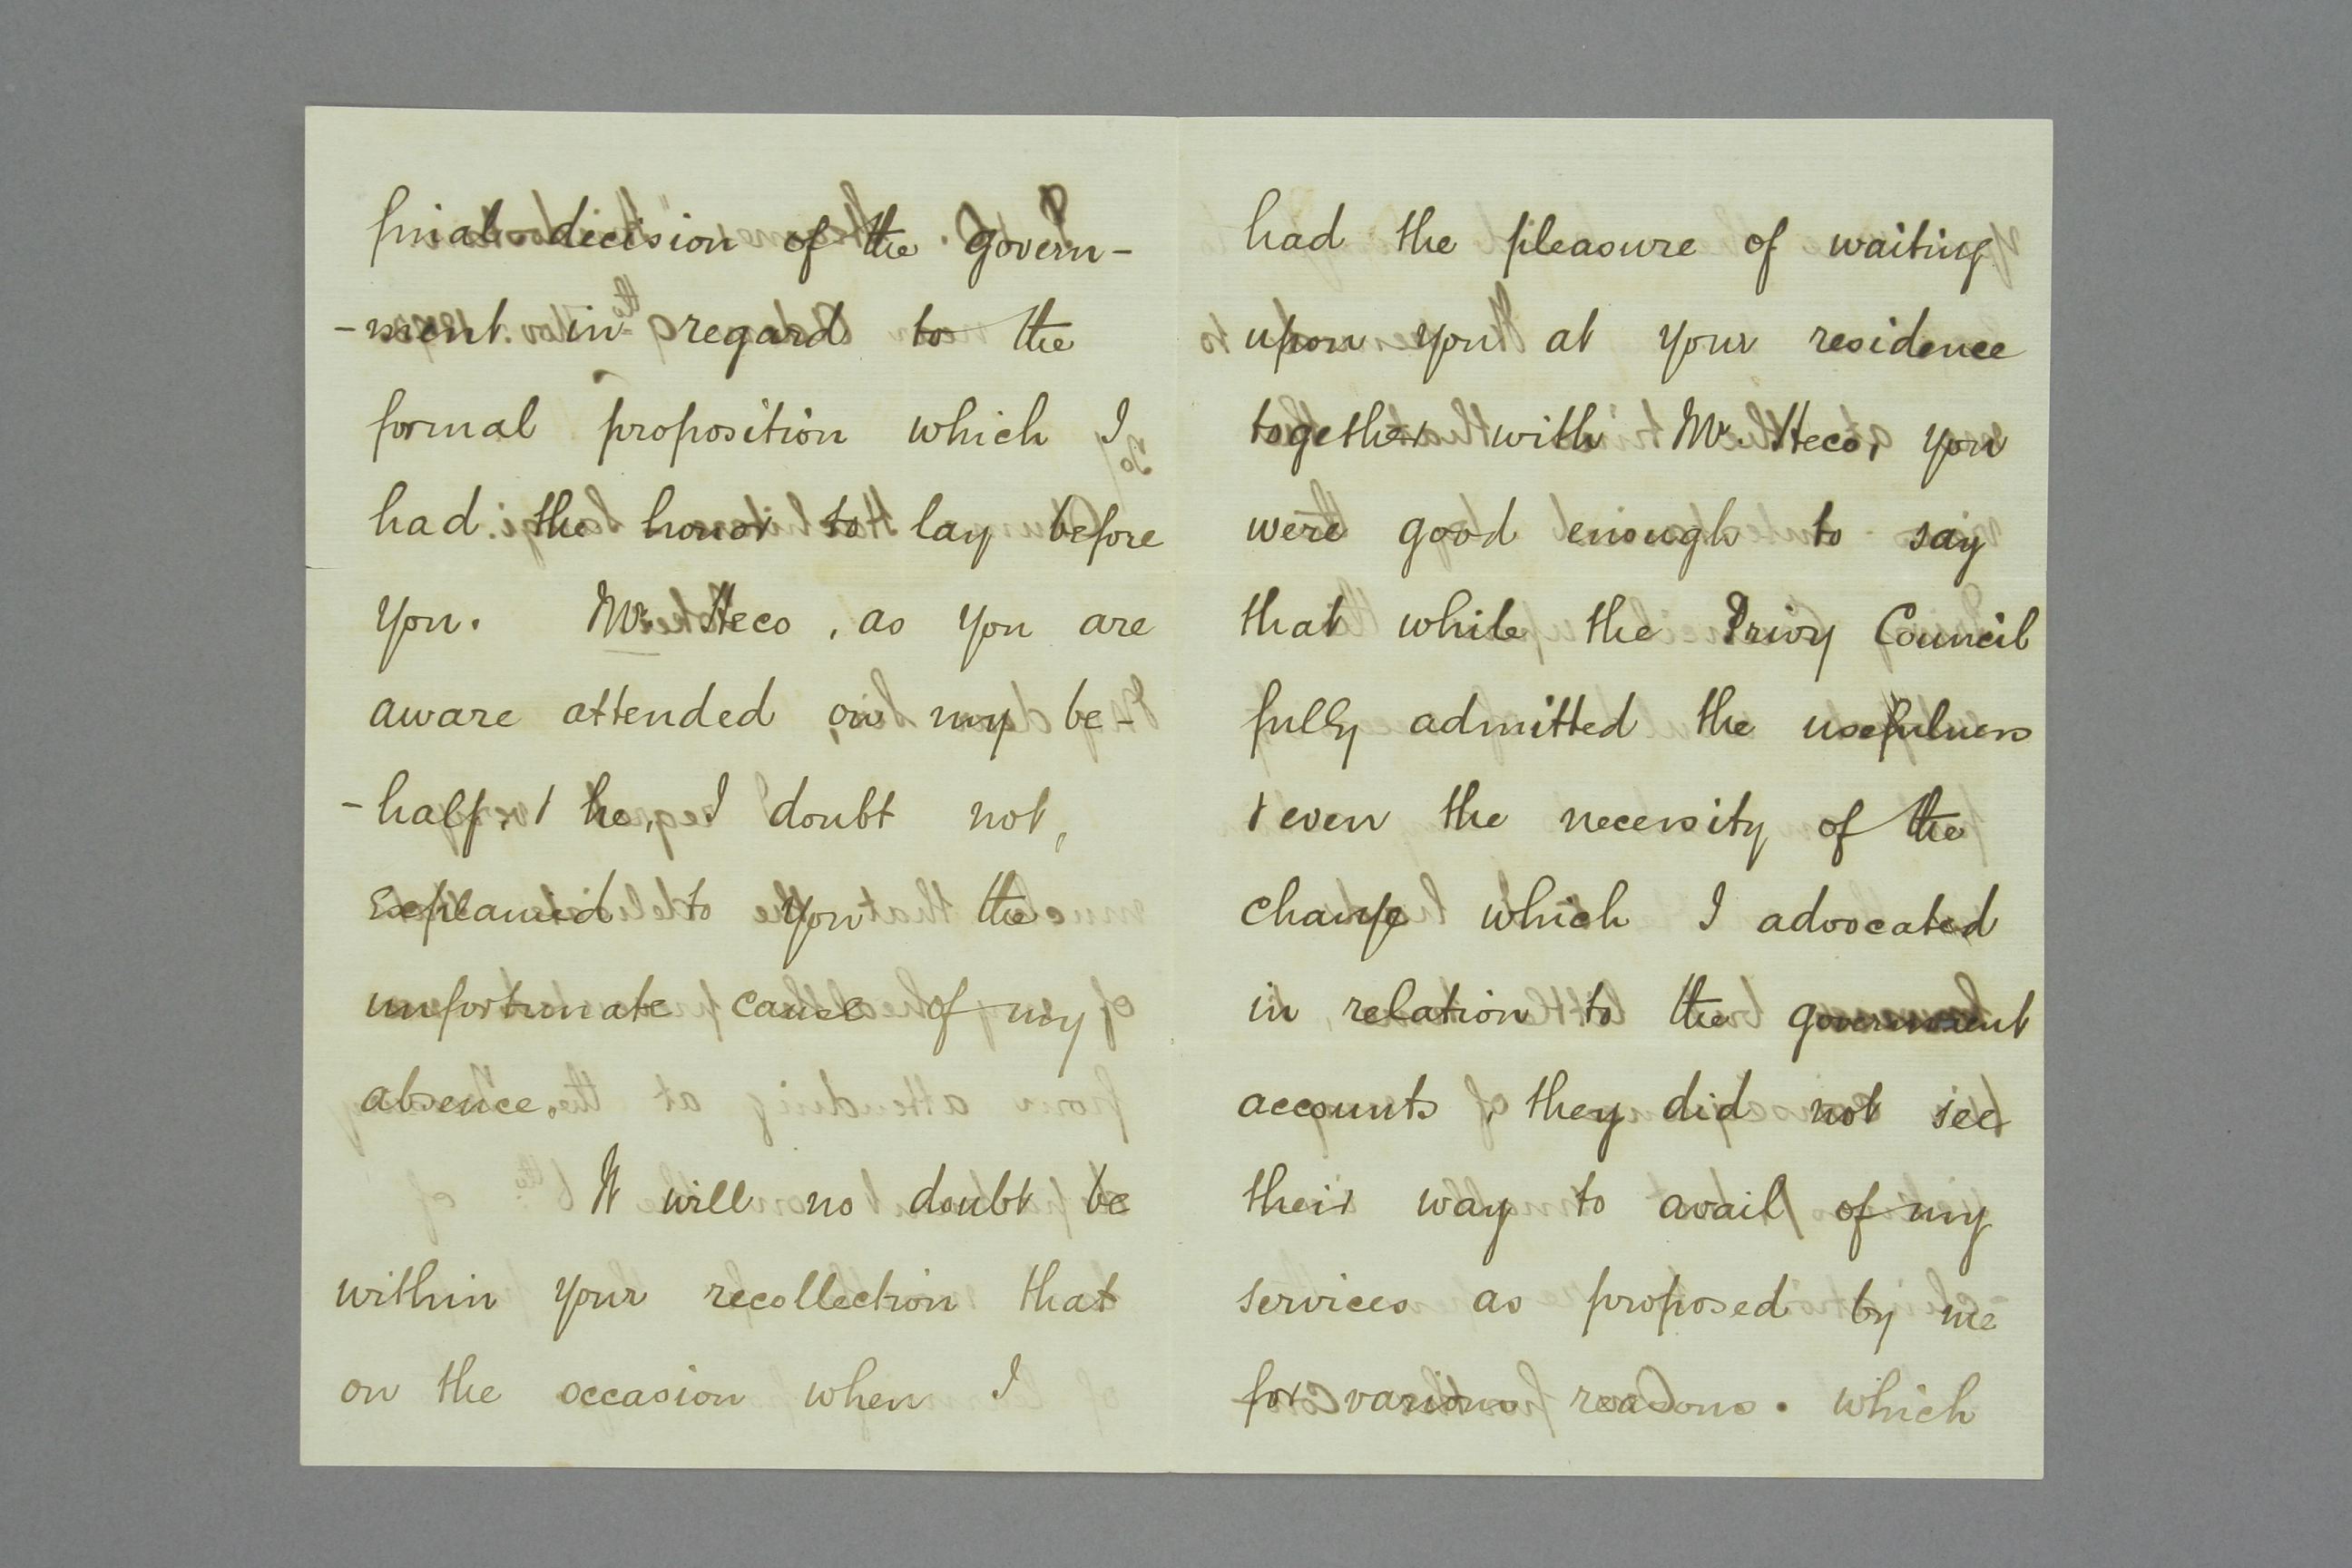 final decision of the govern-
-ment in regard to the
formal proposition which I
had the honor to lay before
you. Mr. Heco, as you are
aware attended, on my be-
-half, & he, I doubt not,
explained to you the
unfortunate cause of my
absence.
It will no doubt be
within your recollection that
on the occasion when I
had the pleasure of waiting
upon you at your residence
together with Mr. Heco, you
were good enough to say
that while the Privy Council
fully admitted the usefulness
& even the necessity of the
change which I advocated
in relation to the government
accounts, they did not see
their way to avail of my
services as proposed by me
for various reasons. which